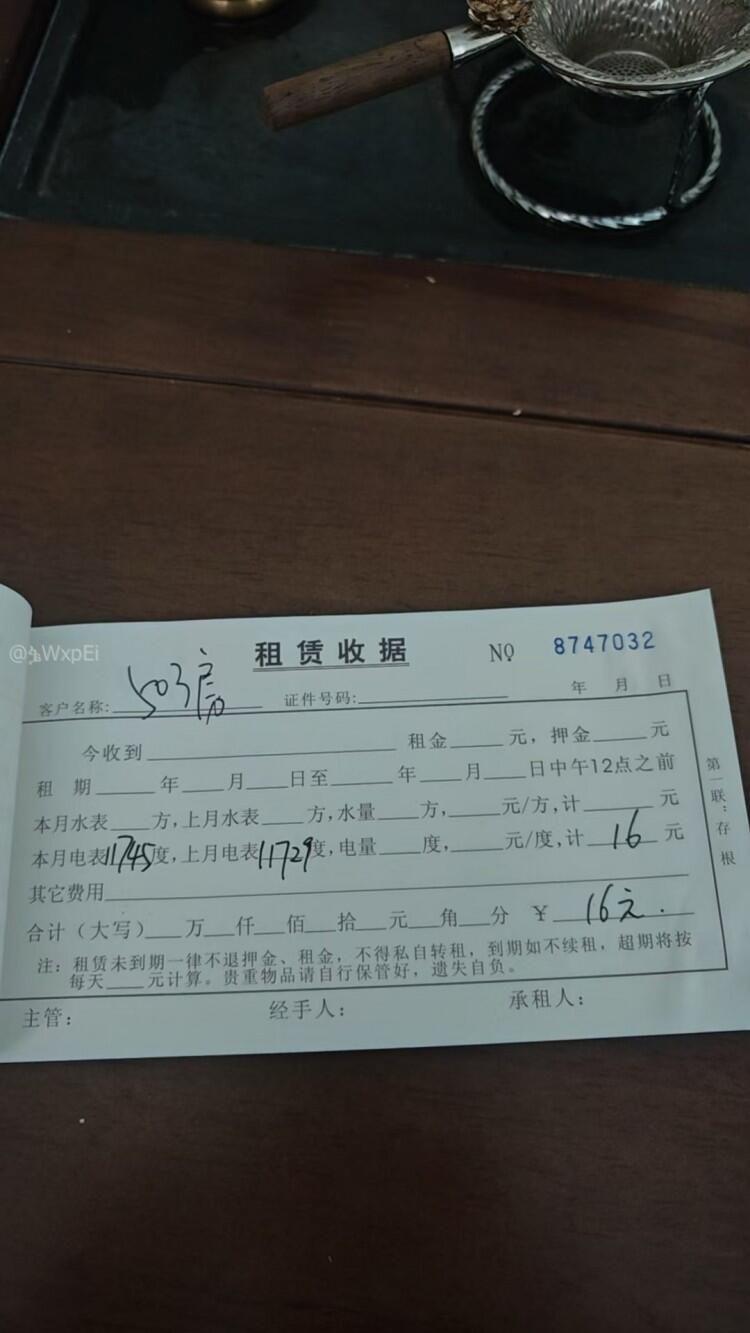 @WxpEi
租赁收据 NO 8747032
客户名称: 503房 证件号码: 年 月 日
今收到 租金 元，押金 元
租 期 年 月 日至 年 月 日中午12点之前
本月水表 方，上月水表 方，水量 方， 元/方，计 元
本月电表11745度，上月电表11729度，电量 度， 元/度，计 16 元
其它费用
合计（大写） 万 仟 佰 拾 元 角 分 ¥ 16元.
注：租赁未到期一律不退押金、租金，不得私自转租，到期如不续租，超期将按
每天 元计算。贵重物品请自行保管好，遗失自负。
主管： 经手人： 承租人：
第一联：存根